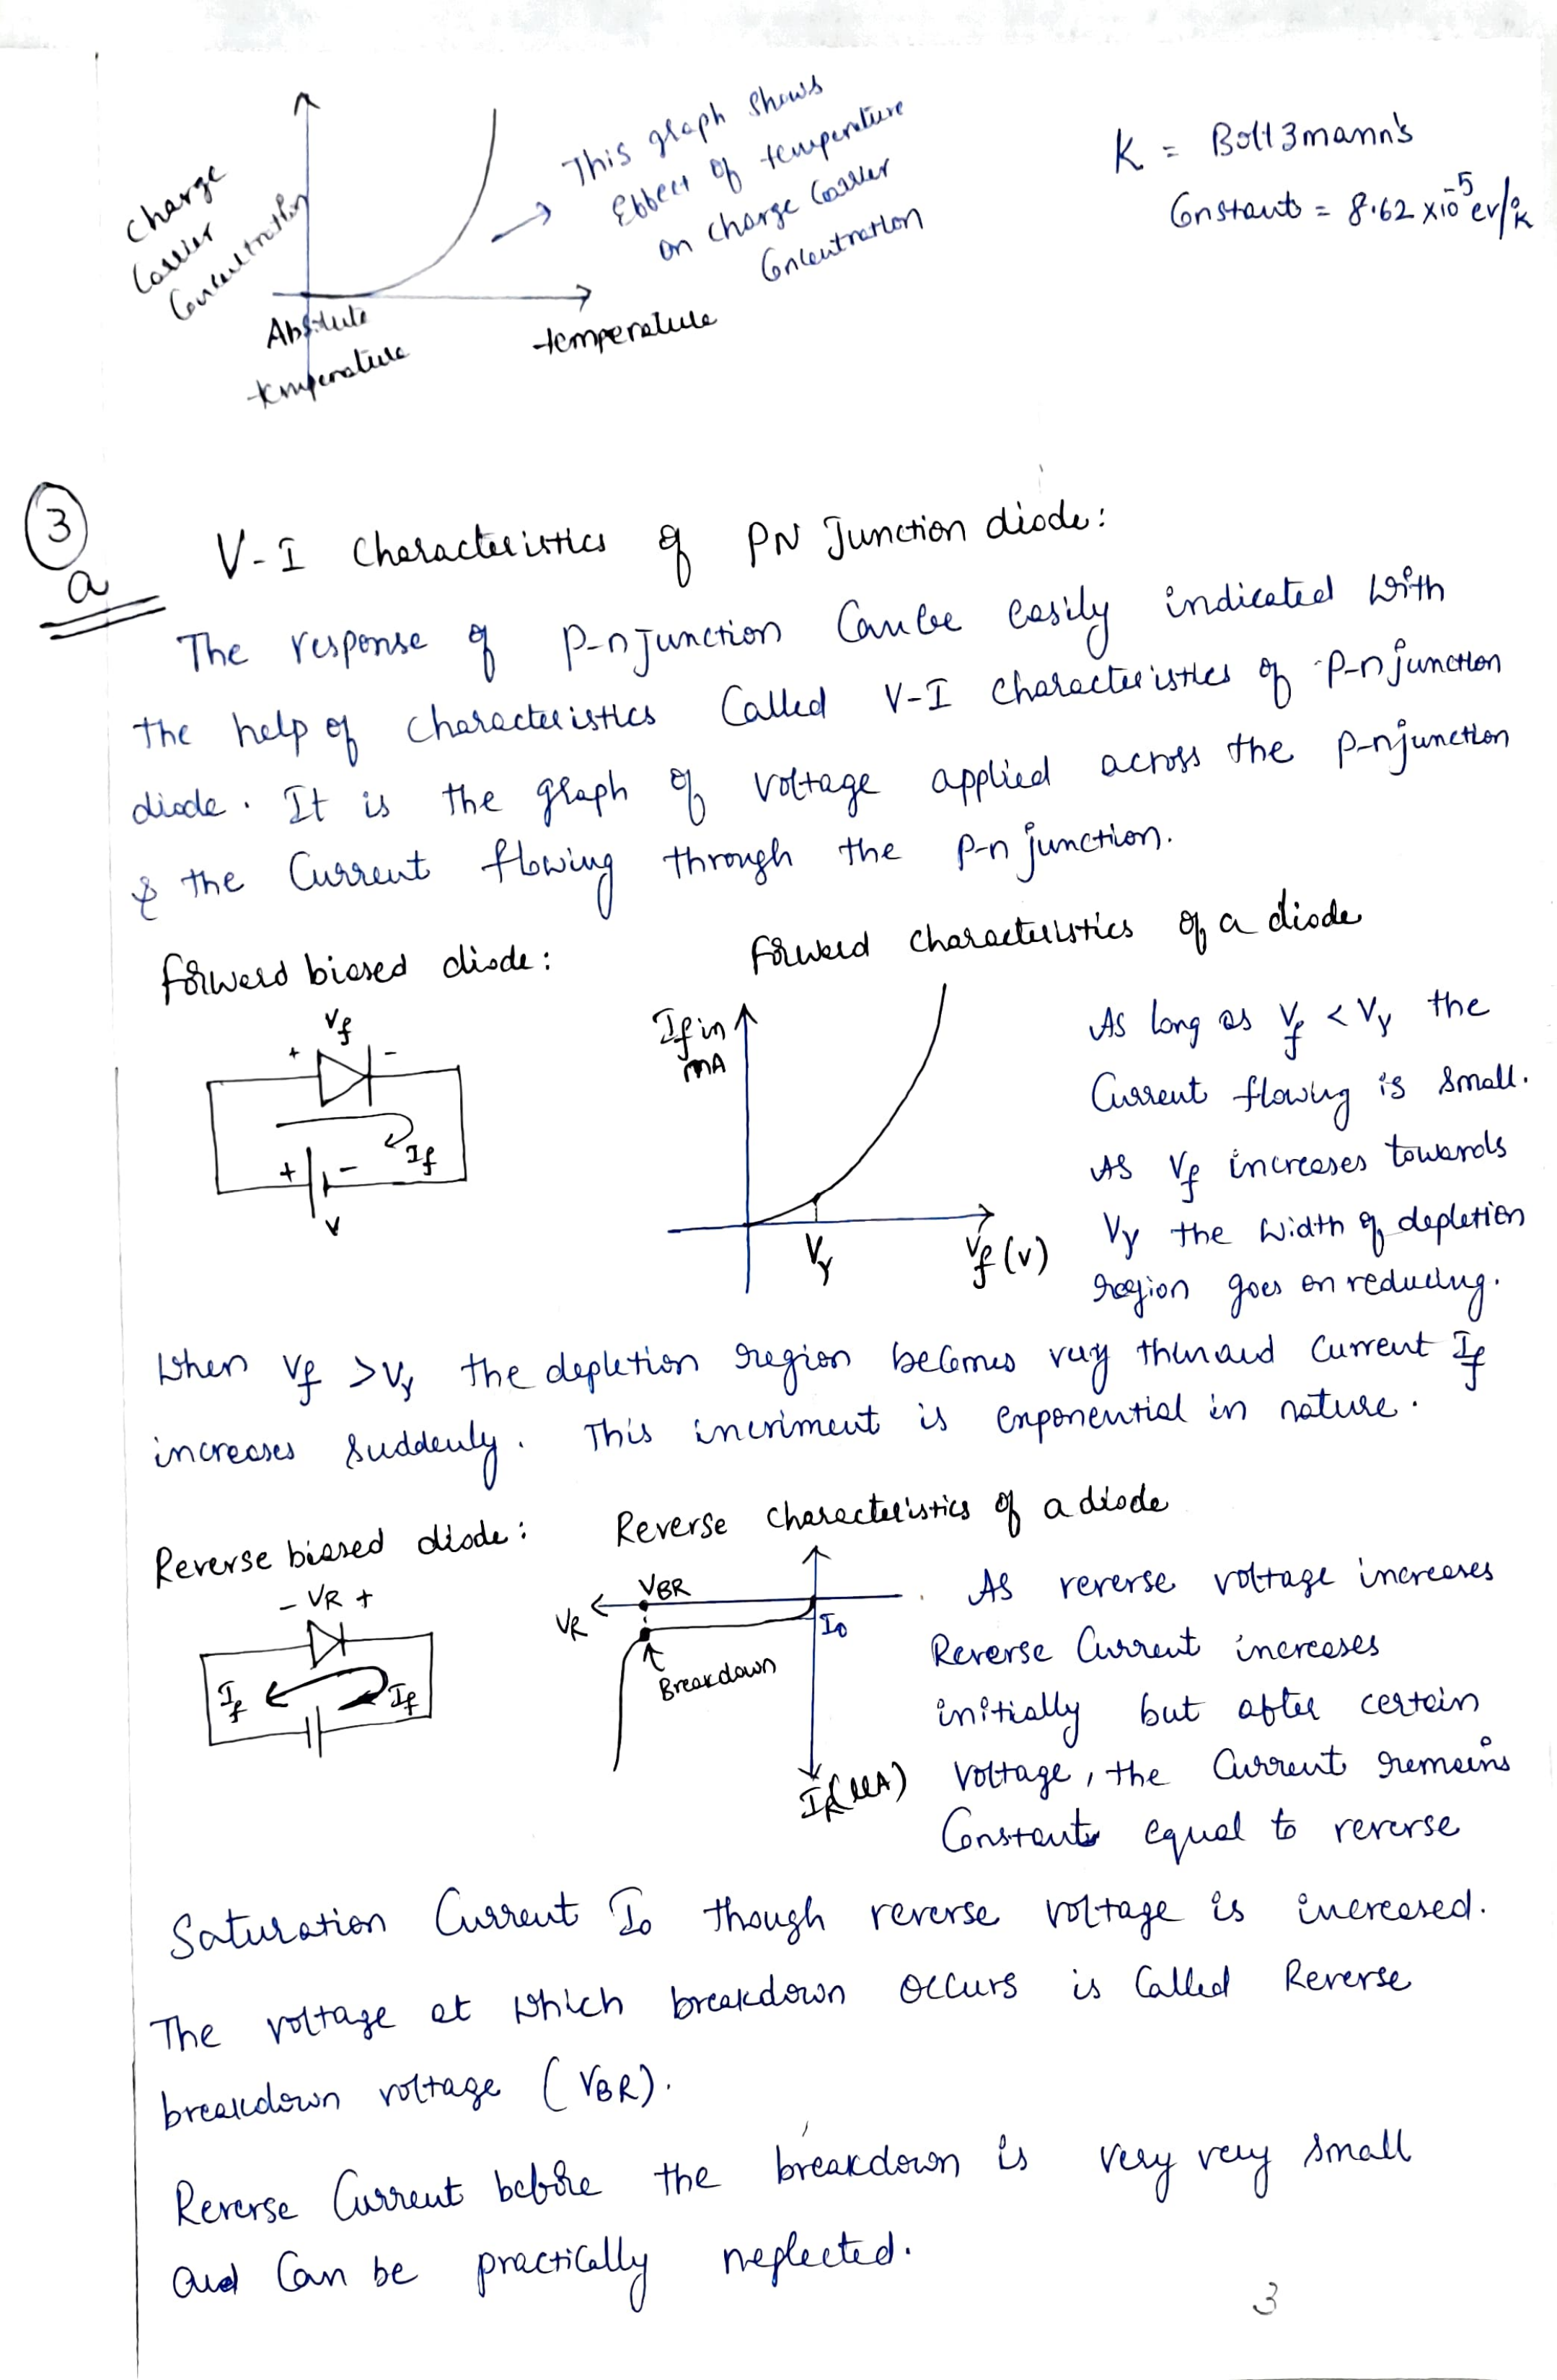 Charge
Carrier
Concentration
Absolute
temperature
temperature
This graph shows
Effect of temperature
on charge Carrier
Concentration
K = Boltzmann's
Constant = 8.62 x10^-5 ev/°k
3
a
V-I Characteristics of PN Junction diode:
The response of p-n junction Can be easily indicated with
the help of characteristics Called V-I characteristics of p-n junction
diode. It is the graph of voltage applied across the p-n junction
& the Current flowing through the p-n junction.
forward biased diode:
Forward characteristics of a diode
Vf
+ -
If
+ -
V
If in
mA
Vγ
Vf (v)
As long as Vf < Vγ the
Current flowing is small.
As Vf increases towards
Vγ the width of depletion
region goes on reducing.
When Vf > Vγ the depletion region becomes very thin and Current If
increases suddenly. This incriment is exponential in nature.
Reverse biased diode:
Reverse characteristics of a diode
- VR +
If
If
VBR
VR
I0
Breakdown
IR(μA)
As reverse voltage increases
Reverse Current increases
initially but after certain
voltage, the Current remains
Constant equal to reverse
Saturation Current I0 though reverse voltage is increased.
The voltage at which breakdown occurs is Called Reverse
breakdown voltage (VBR).
Reverse Current before the breakdown is very very small
and Can be practically neglected.
3